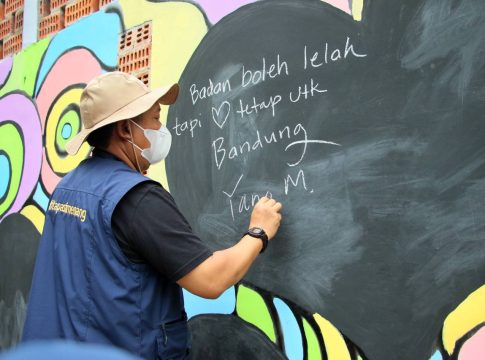 Badan boleh lelah
tapi ♡ tetap utk
Bandung
Yana M.
#tapadmenang